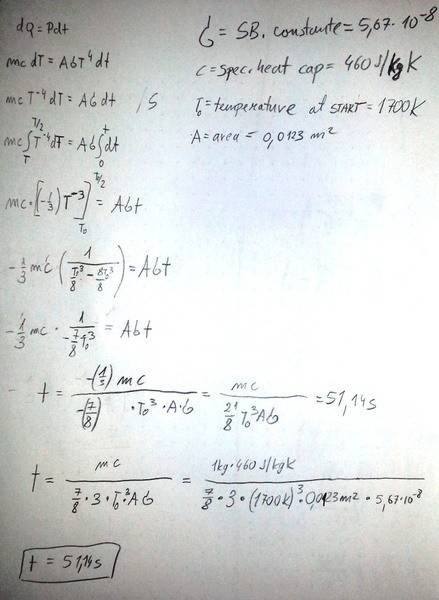 dQ = Pdt
mc dT = AσT⁴ dt
mc T⁻⁴ dT = Aσ dt /S
mc ∫_T^{T/2} T⁻⁴ dT = Aσ ∫_0^t dt
mc · [(-1/3) T⁻³]_{T₀}^{T₀/2} = Aσt
-1/3 mc (1 / (T₀³/8 - 8T₀³/8)) = Aσt
-1/3 mc · 1 / (-7/8 T₀³) = Aσt
- t = -(1/3) mc / (-(7/8) · T₀³ · A · σ) = mc / (21/8 T₀³Aσ) = 51,14s
t = mc / (7/8 · 3 · T₀³Aσ) = 1kg · 460 J/kgK / (7/8 · 3 · (1700K)³ · 0,0123m² · 5,67·10⁻⁸)
t = 51,14s
σ = SB. constante = 5,67 · 10⁻⁸
c = spec. heat cap = 460 J/kgK
T₀ = temperature at START = 1700K
A = area = 0,0123 m²